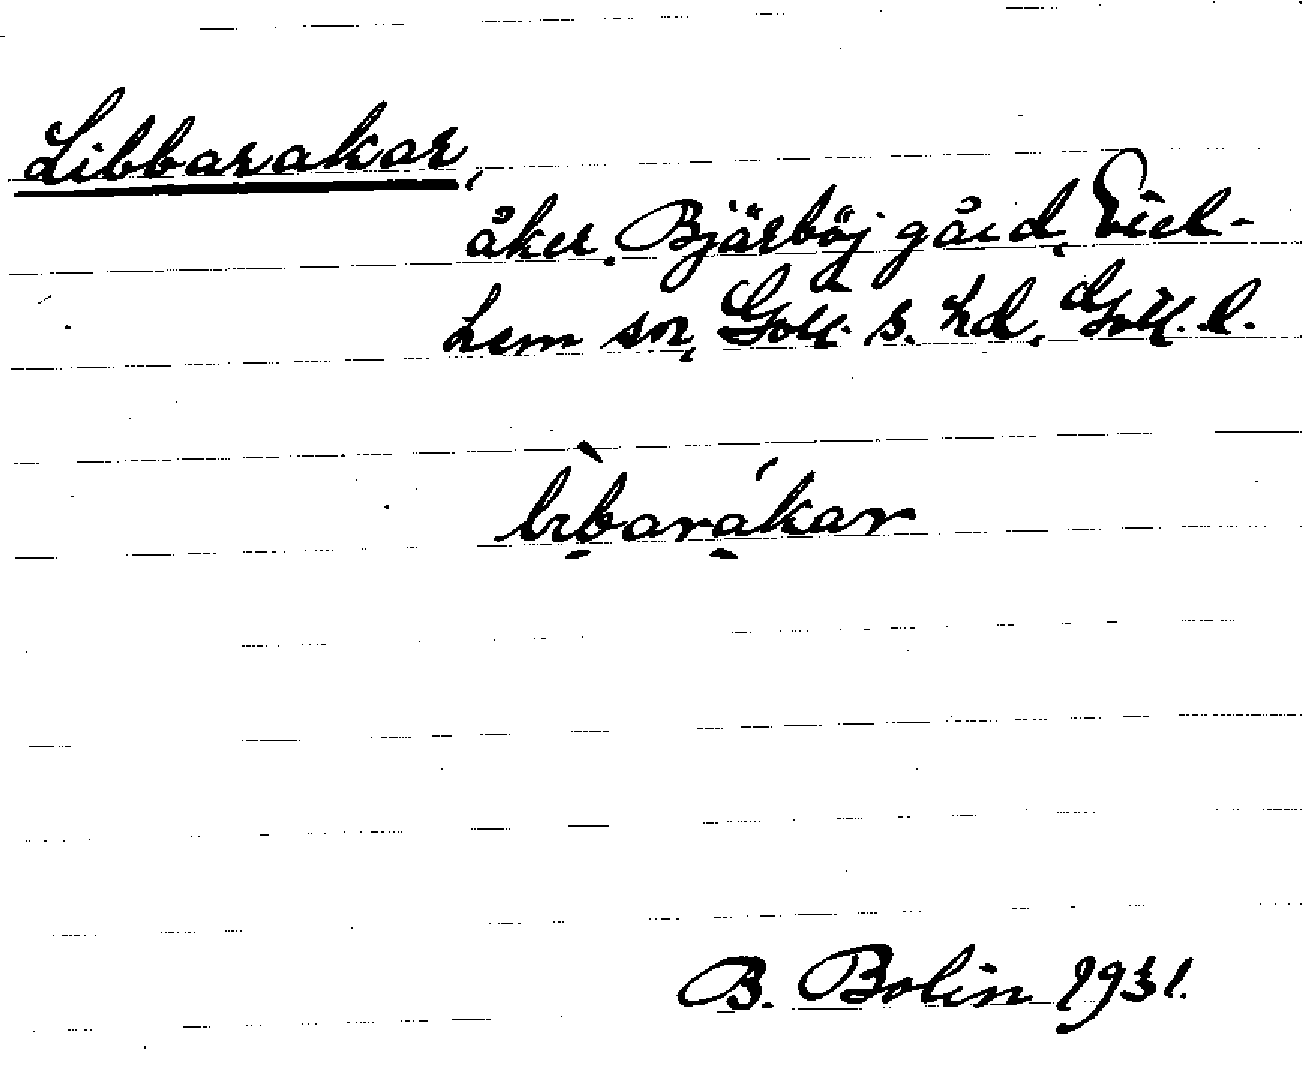 Libbarakar,
åker. Bjärböj gård, Viel-
hem sn, Gotl. s. hd, Gotl. l.
lìbarákar
B. Bolin 1931.